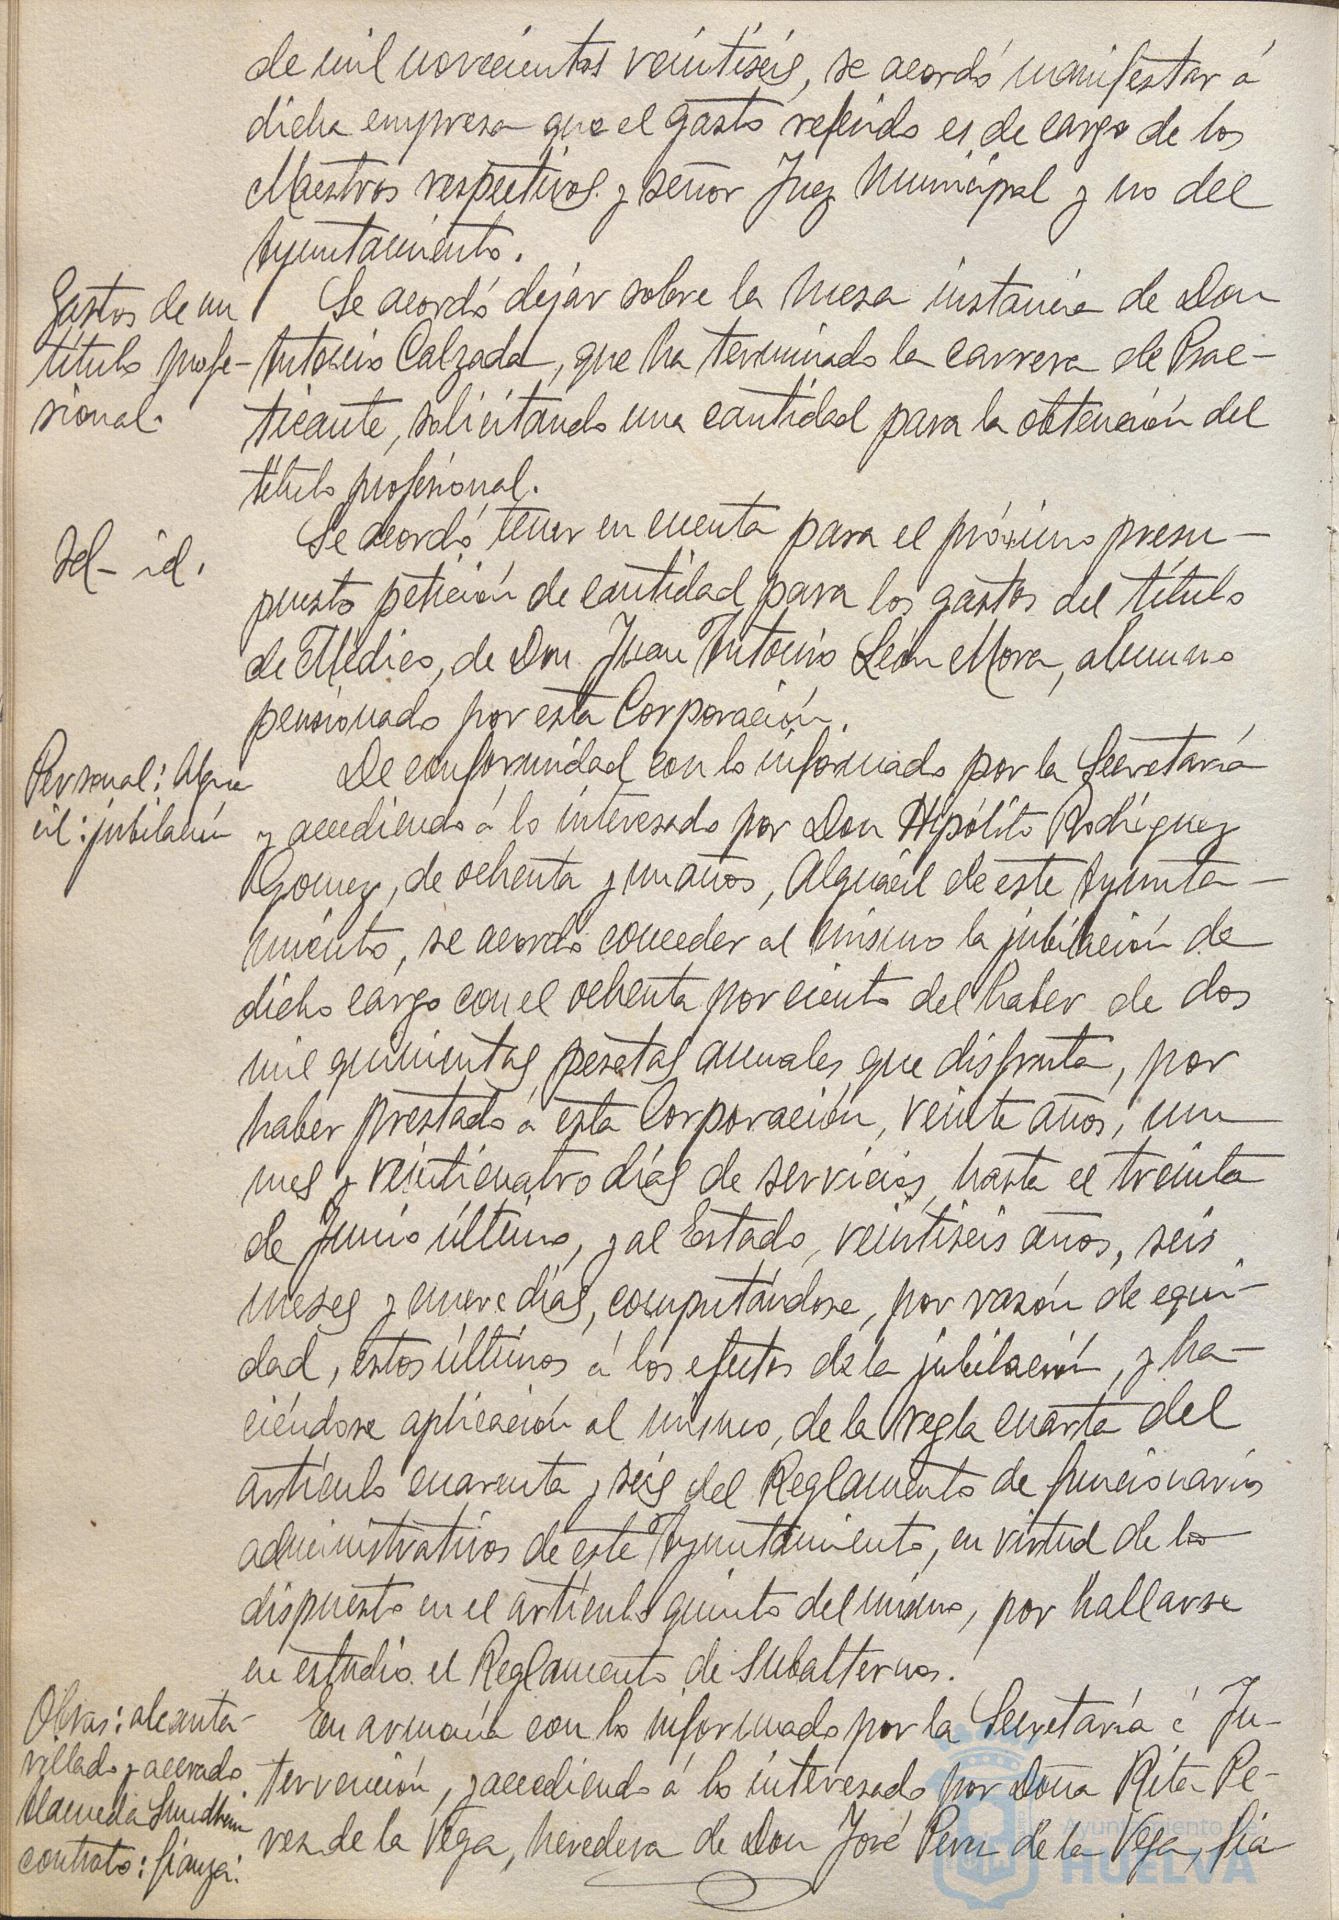 de mil novecientos veintiseis, se acordó manifestar á
dicha empresa que el gasto referido es de cargo de los
Maestros respectivos y señor Juez Municipal y no del
Ayuntamiento.
Gastos de un
título profe-
sional.
Se acordó dejar sobre la mesa instancia de Don
Antonio Calzada, que ha terminado la carrera de Prac-
ticante, solicitando una cantidad para la obtención del
título profesional.
Id- id.
Se acordó tener en cuenta para el próximo presu-
puesto petición de cantidad para los gastos del título
de Médico, de Don Juan Antonio León Mora, alumno
pensionado por esta Corporación.
Personal: Algua
cil: jubilación
De conformidad con lo informado por la Secretaría
y accediendo á lo interesado por Don Hipólito Rodríguez
Gomez, de ochenta y un años, Alguacil de este Ayunta-
miento, se acordó conceder al mismo la jubilación de
dicho cargo con el ochenta por ciento del haber de dos
mil quinientas pesetas anuales que disfruta, por
haber prestado á esta Corporación, veinte años, un
mes y veinticuatro días de servicios, hasta el treinta
de Junio último, y al Estado, veintiseis años, seis
meses y nueve días, computándose, por razón de equi-
dad, estos últimos á los efectos de la jubilación, y ha-
ciéndose aplicación al mismo, de la regla cuarta del
artículo cuarenta y seis del Reglamento de funcionarios
administrativos de este Ayuntamiento, en virtud de lo
dispuesto en el artículo quinto del mismo, por hallarse
en estudio el Reglamento de Subalternos.
Obras: alcanta-
rillado y acerado
Alameda Sundheim
contrato: fianza:
En armonía con lo informado por la Secretaría é In-
tervención, y accediendo á lo interesado por Doña Rita Pe-
rez de la Vega, heredera de Don José Perez de la Vega, fia-
Ayuntamiento de
HUELVA